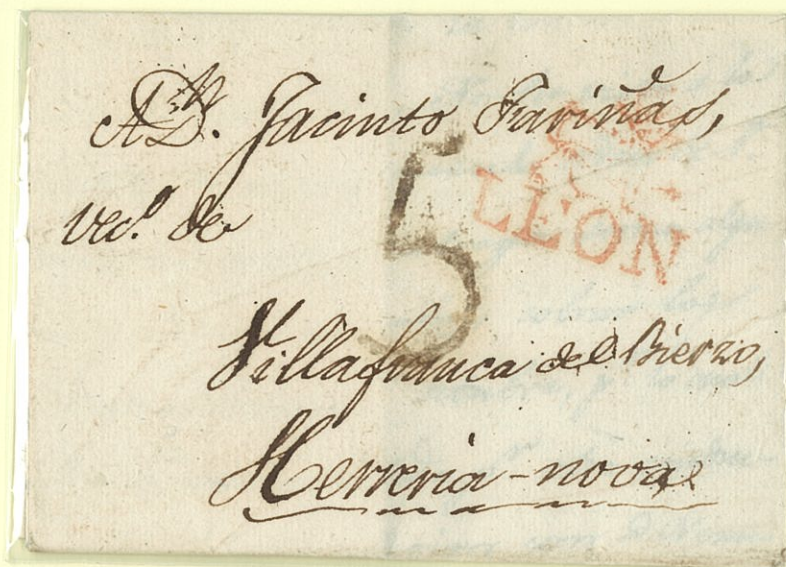 A D.ⁿ Jacinto Fariñas,
LEON
5
vec.º de
Villafranca del Bierzo,
Herreria-nova